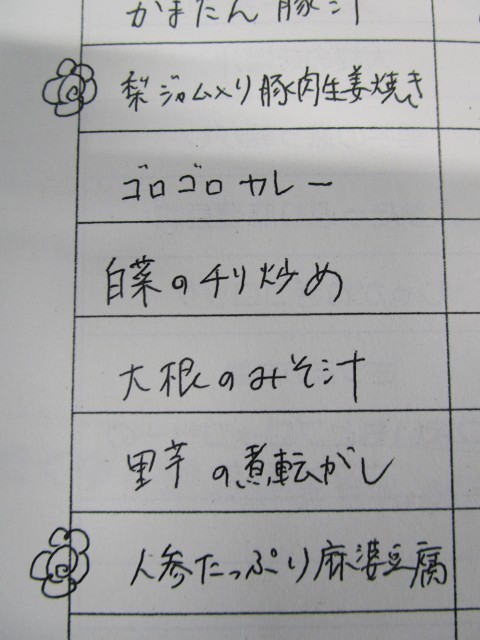 かまたん豚汁
梨ジャム入り豚肉生姜焼き
ゴロゴロカレー
白菜のチリ炒め
大根のみそ汁
里芋の煮転がし
人参たっぷり麻婆豆腐